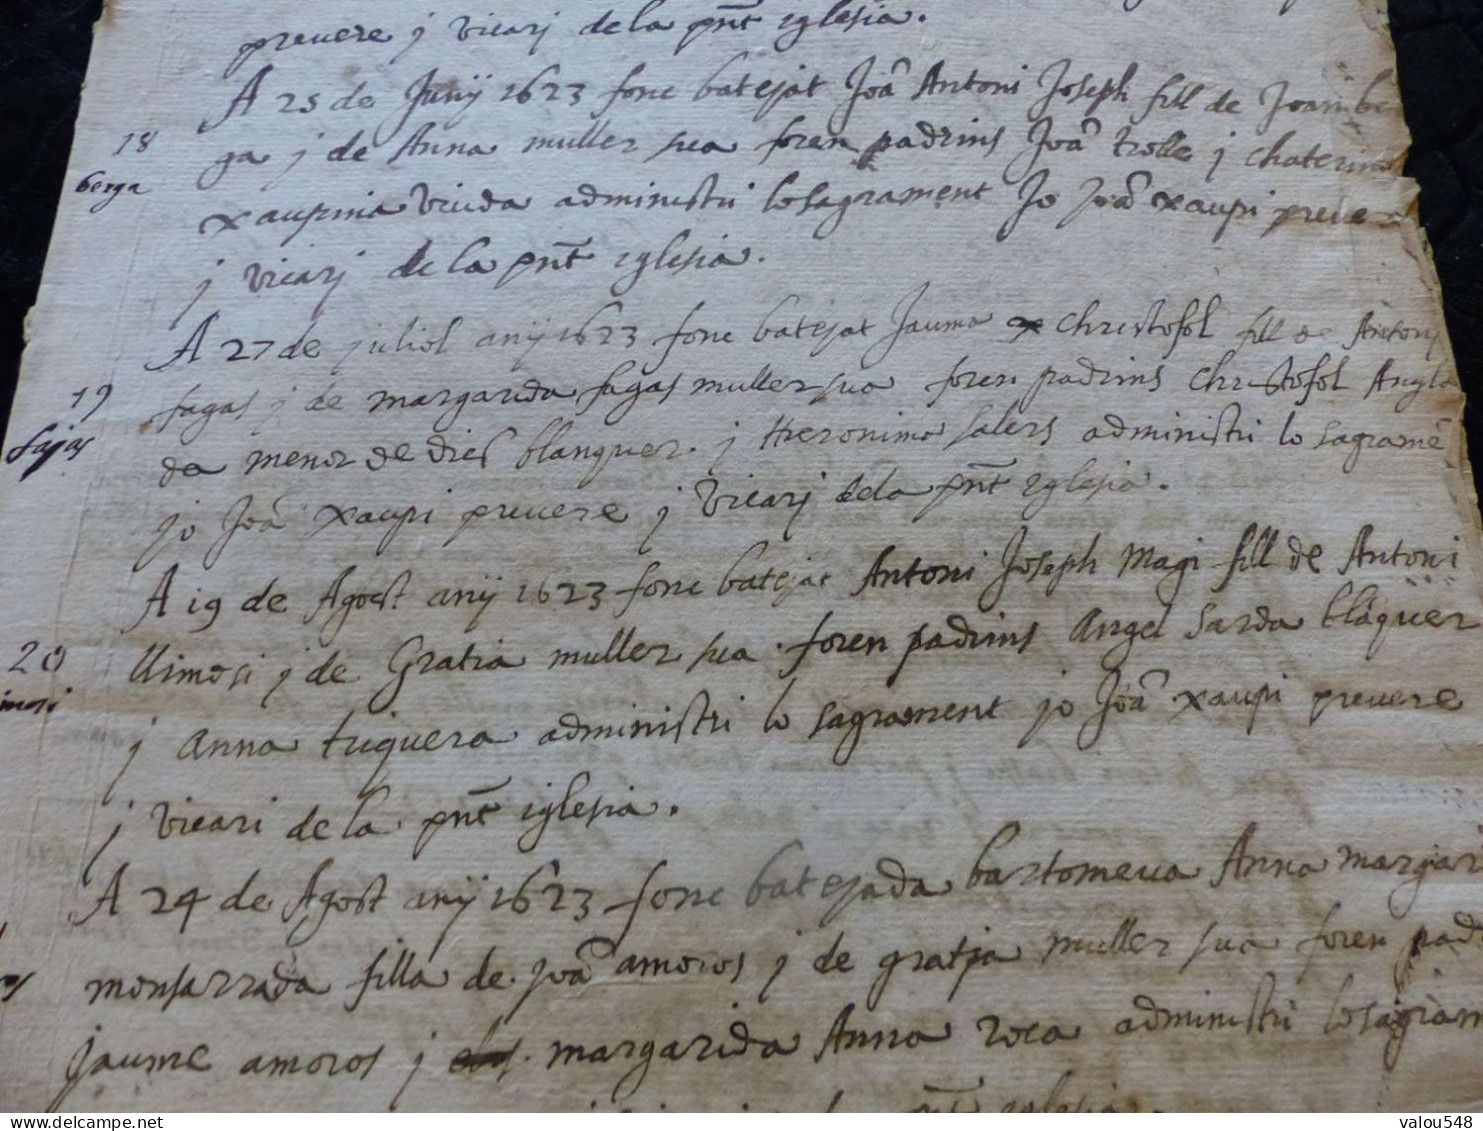 prevere j vicarj de la pnt iglesia.
A 25 de Junÿ 1623 fonc batejat Joã Antoni Joseph fill de Joam be
18
ga j de Anna muller sua foren padrins Joã trolle j chaterina
berga
xaupina viuda administri lo sagrament Jo Joã xaupi preve
j vicarj de la pnt iglesia.
A 27 de juliol anÿ 1623 fonc batejat Jauma x christofol fill de Antonj
19
fagas j de margarida fagas muller sua foren padrins christofol Angla
fajas
da menor de dies blanquer. j Hieronima salers administri lo sagramẽ
jo Joã xaupi prevere j vicarj dela pnt iglesia.
A 19 de Agost anÿ 1623 fonc batejat Antoni Joseph Magi fill de Antoni
20
llimosi j de Gratia muller sua. foren padrins Angel sarda blãquer
imosi
j Anna triquera administri lo sagrament jo Joã xaupi prevere
j vicari de la pnt iglesia.
A 24 de Agost anÿ 1623 fonc batejada bartomeua Anna margari
monsarrada filla de joã amoros j de gratja muller sua foren padri
os
jaume amoros j margarida Anna roca administri lo sagram
pnt iglesia.
valou548